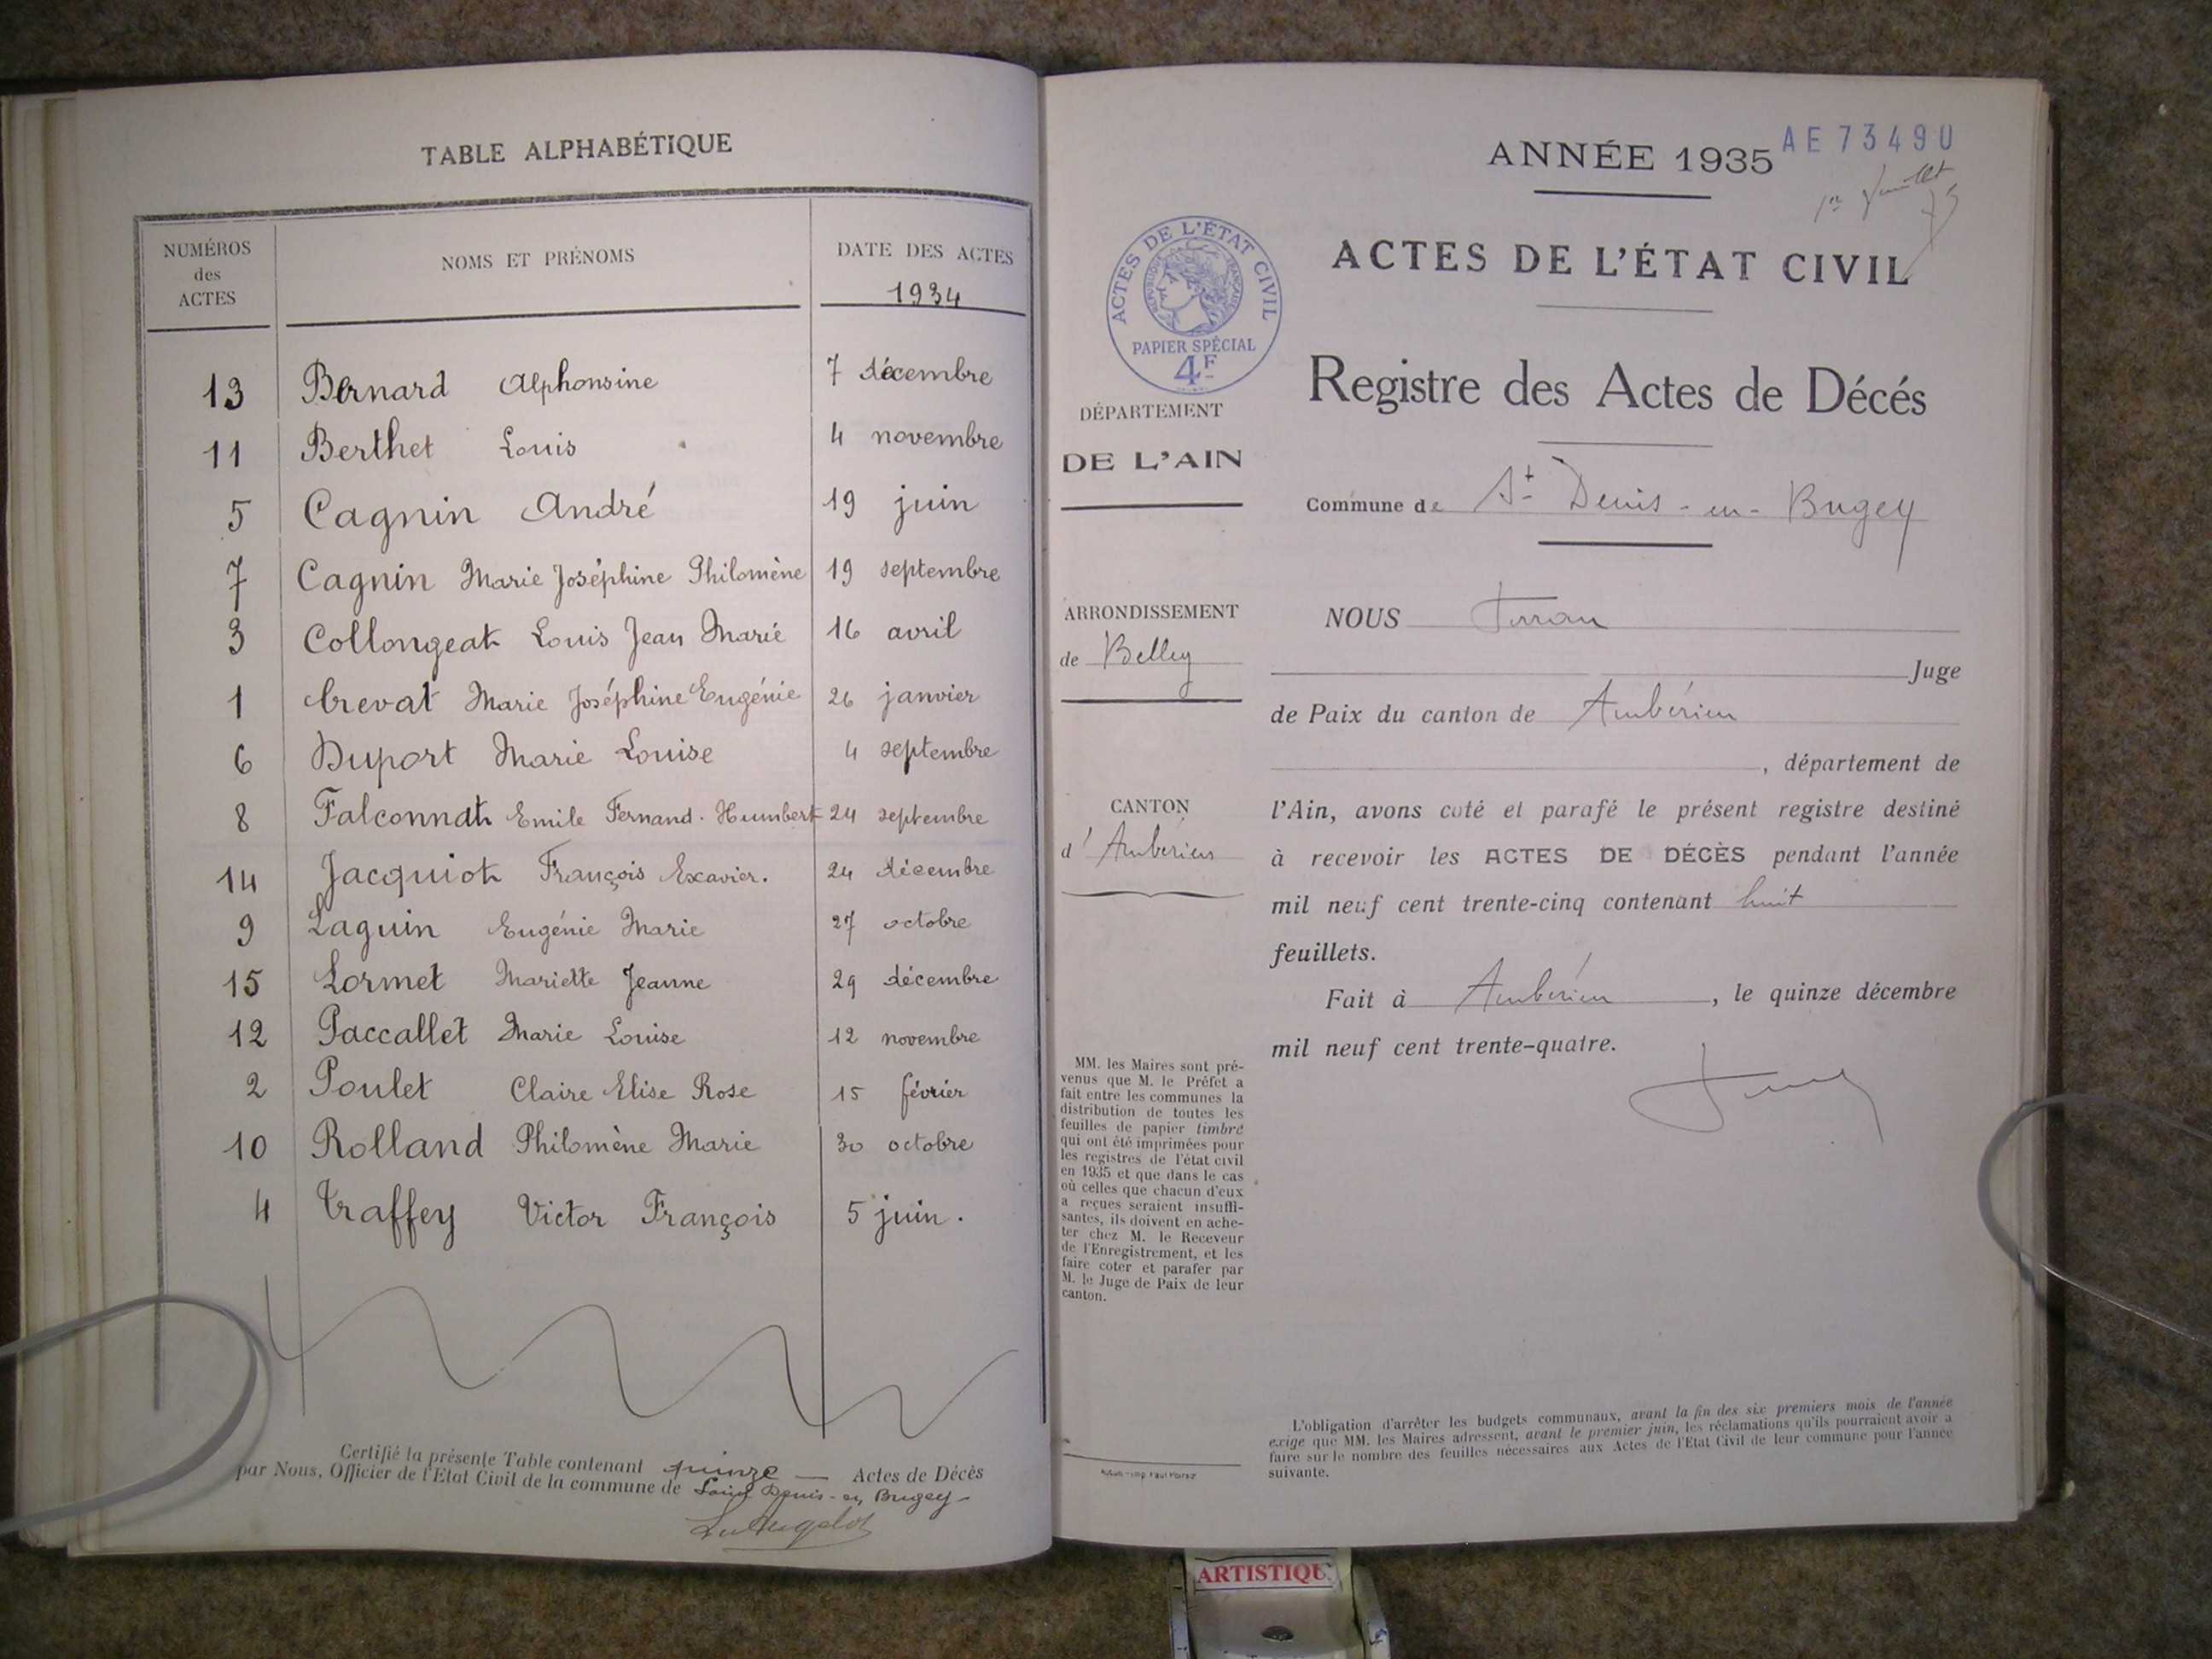 TABLE ALPHABÉTIQUE
NUMÉROS des ACTES
NOMS ET PRÉNOMS
DATE DES ACTES
1934
13 Bernard Alphonsine 7 décembre
11 Berthet Louis 4 novembre
5 Cagnin André 19 juin
7 Cagnin Marie Joséphine Philomène 19 septembre
3 Collongeat Louis Jean Marie 16 avril
1 Crevat Marie Joséphine Eugénie 26 janvier
6 Duport Marie Louise 4 septembre
8 Falconnat Emile Fernand. Humbert 24 septembre
14 Jacquiot François Exavier. 24 décembre
9 Laguin Eugénie Marie 27 octobre
15 Lormet Mariette Jeanne 29 décembre
12 Paccallet Marie Louise 12 novembre
2 Poulet Claire Elise Rose 15 février
10 Rolland Philomène Marie 30 octobre
4 Traffey Victor François 5 juin.
Certifié la présente Table contenant quinze — Actes de Décès
par Nous, Officier de l'Etat Civil de la commune de Saint Denis-en Bugey-
ANNÉE 1935
AE 73490
1er Juillet
ACTES DE L'ÉTAT CIVIL
ACTES DE L'ÉTAT CIVIL
RÉPUBLIQUE FRANÇAISE
PAPIER SPÉCIAL
4F
Registre des Actes de Décés
DÉPARTEMENT
DE L'AIN
Commune de St Denis-en-Bugey
ARRONDISSEMENT
de Belley
CANTON
d'Ambérieu
MM. les Maires sont pré-
venus que M. le Préfet a
fait entre les communes la
distribution de toutes les
feuilles de papier timbré
qui ont été imprimées pour
les registres de l'état civil
en 1935 et que dans le cas
où celles que chacun d'eux
a reçues seraient insuffi-
santes, ils doivent en ache-
ter chez M. le Receveur
de l'Enregistrement, et les
faire coter et parafer par
M. le Juge de Paix de leur
canton.
NOUS
Juge
de Paix du canton de Ambérieu
, département de
l'Ain, avons coté et parafé le présent registre destiné
à recevoir les ACTES DE DÉCÈS pendant l'année
mil neuf cent trente-cinq contenant huit
feuillets.
Fait à Ambérieu, le quinze décembre
mil neuf cent trente-quatre.
L'obligation d'arrêter les budgets communaux, avant la fin des six premiers mois de l'année
exige que MM. les Maires adressent, avant le premier juin, les réclamations qu'ils pourraient avoir a
faire sur le nombre des feuilles nécessaires aux Actes de l'Etat Civil de leur commune pour l'année
suivante.
ARTISTIQU